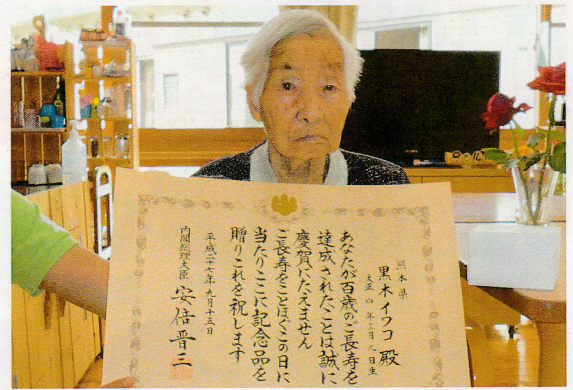 熊本県
黒木イワコ 殿
大正四年六月九日生
あなたが百歳のご長寿を
達成されたことは誠に
慶賀にたえません
ご長寿をことほぐこの日に
当たりここに記念品を
贈りこれを祝します
平成二十七年九月十五日
内閣総理大臣 安倍晋三